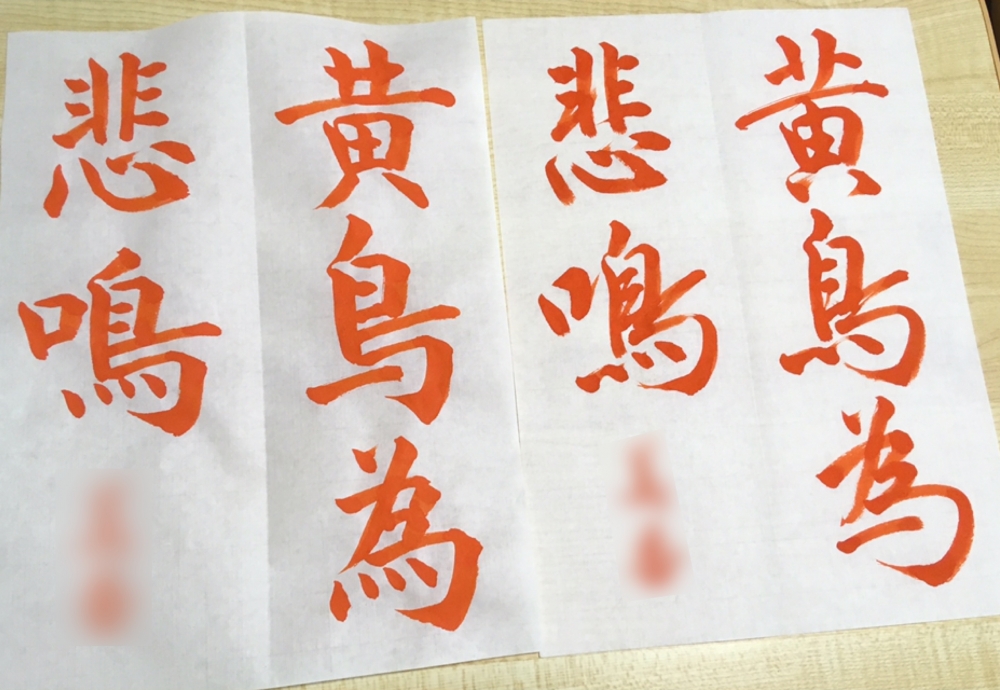 黄鳥為
悲鳴
黄鳥為
悲鳴